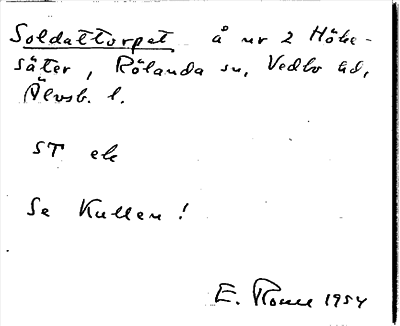 Soldattorpet å nr 2 Höke-
säter, Rölanda sn, Vedbo hd,
Älvsb. l.
ST ek
Se Kullen!
E. 1954